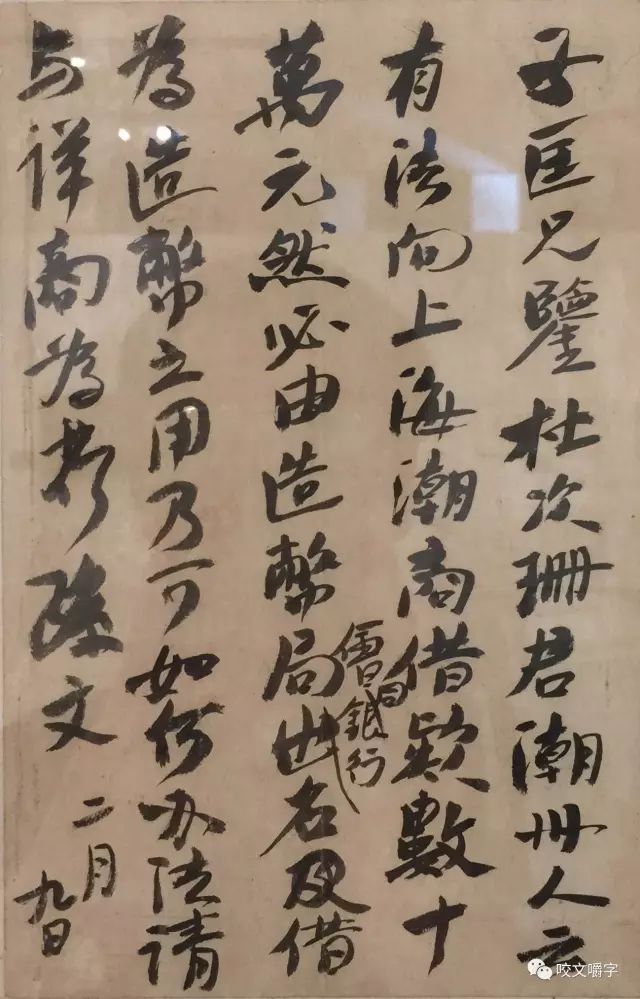 子匡兄鑒杜次珊君潮州人云
有法向上海潮商借款數十
銀行
萬元然必由造幣局出名及借
為造幣之用乃可如何办法請
与詳商為荷孫文
二月
九日
咬文嚼字